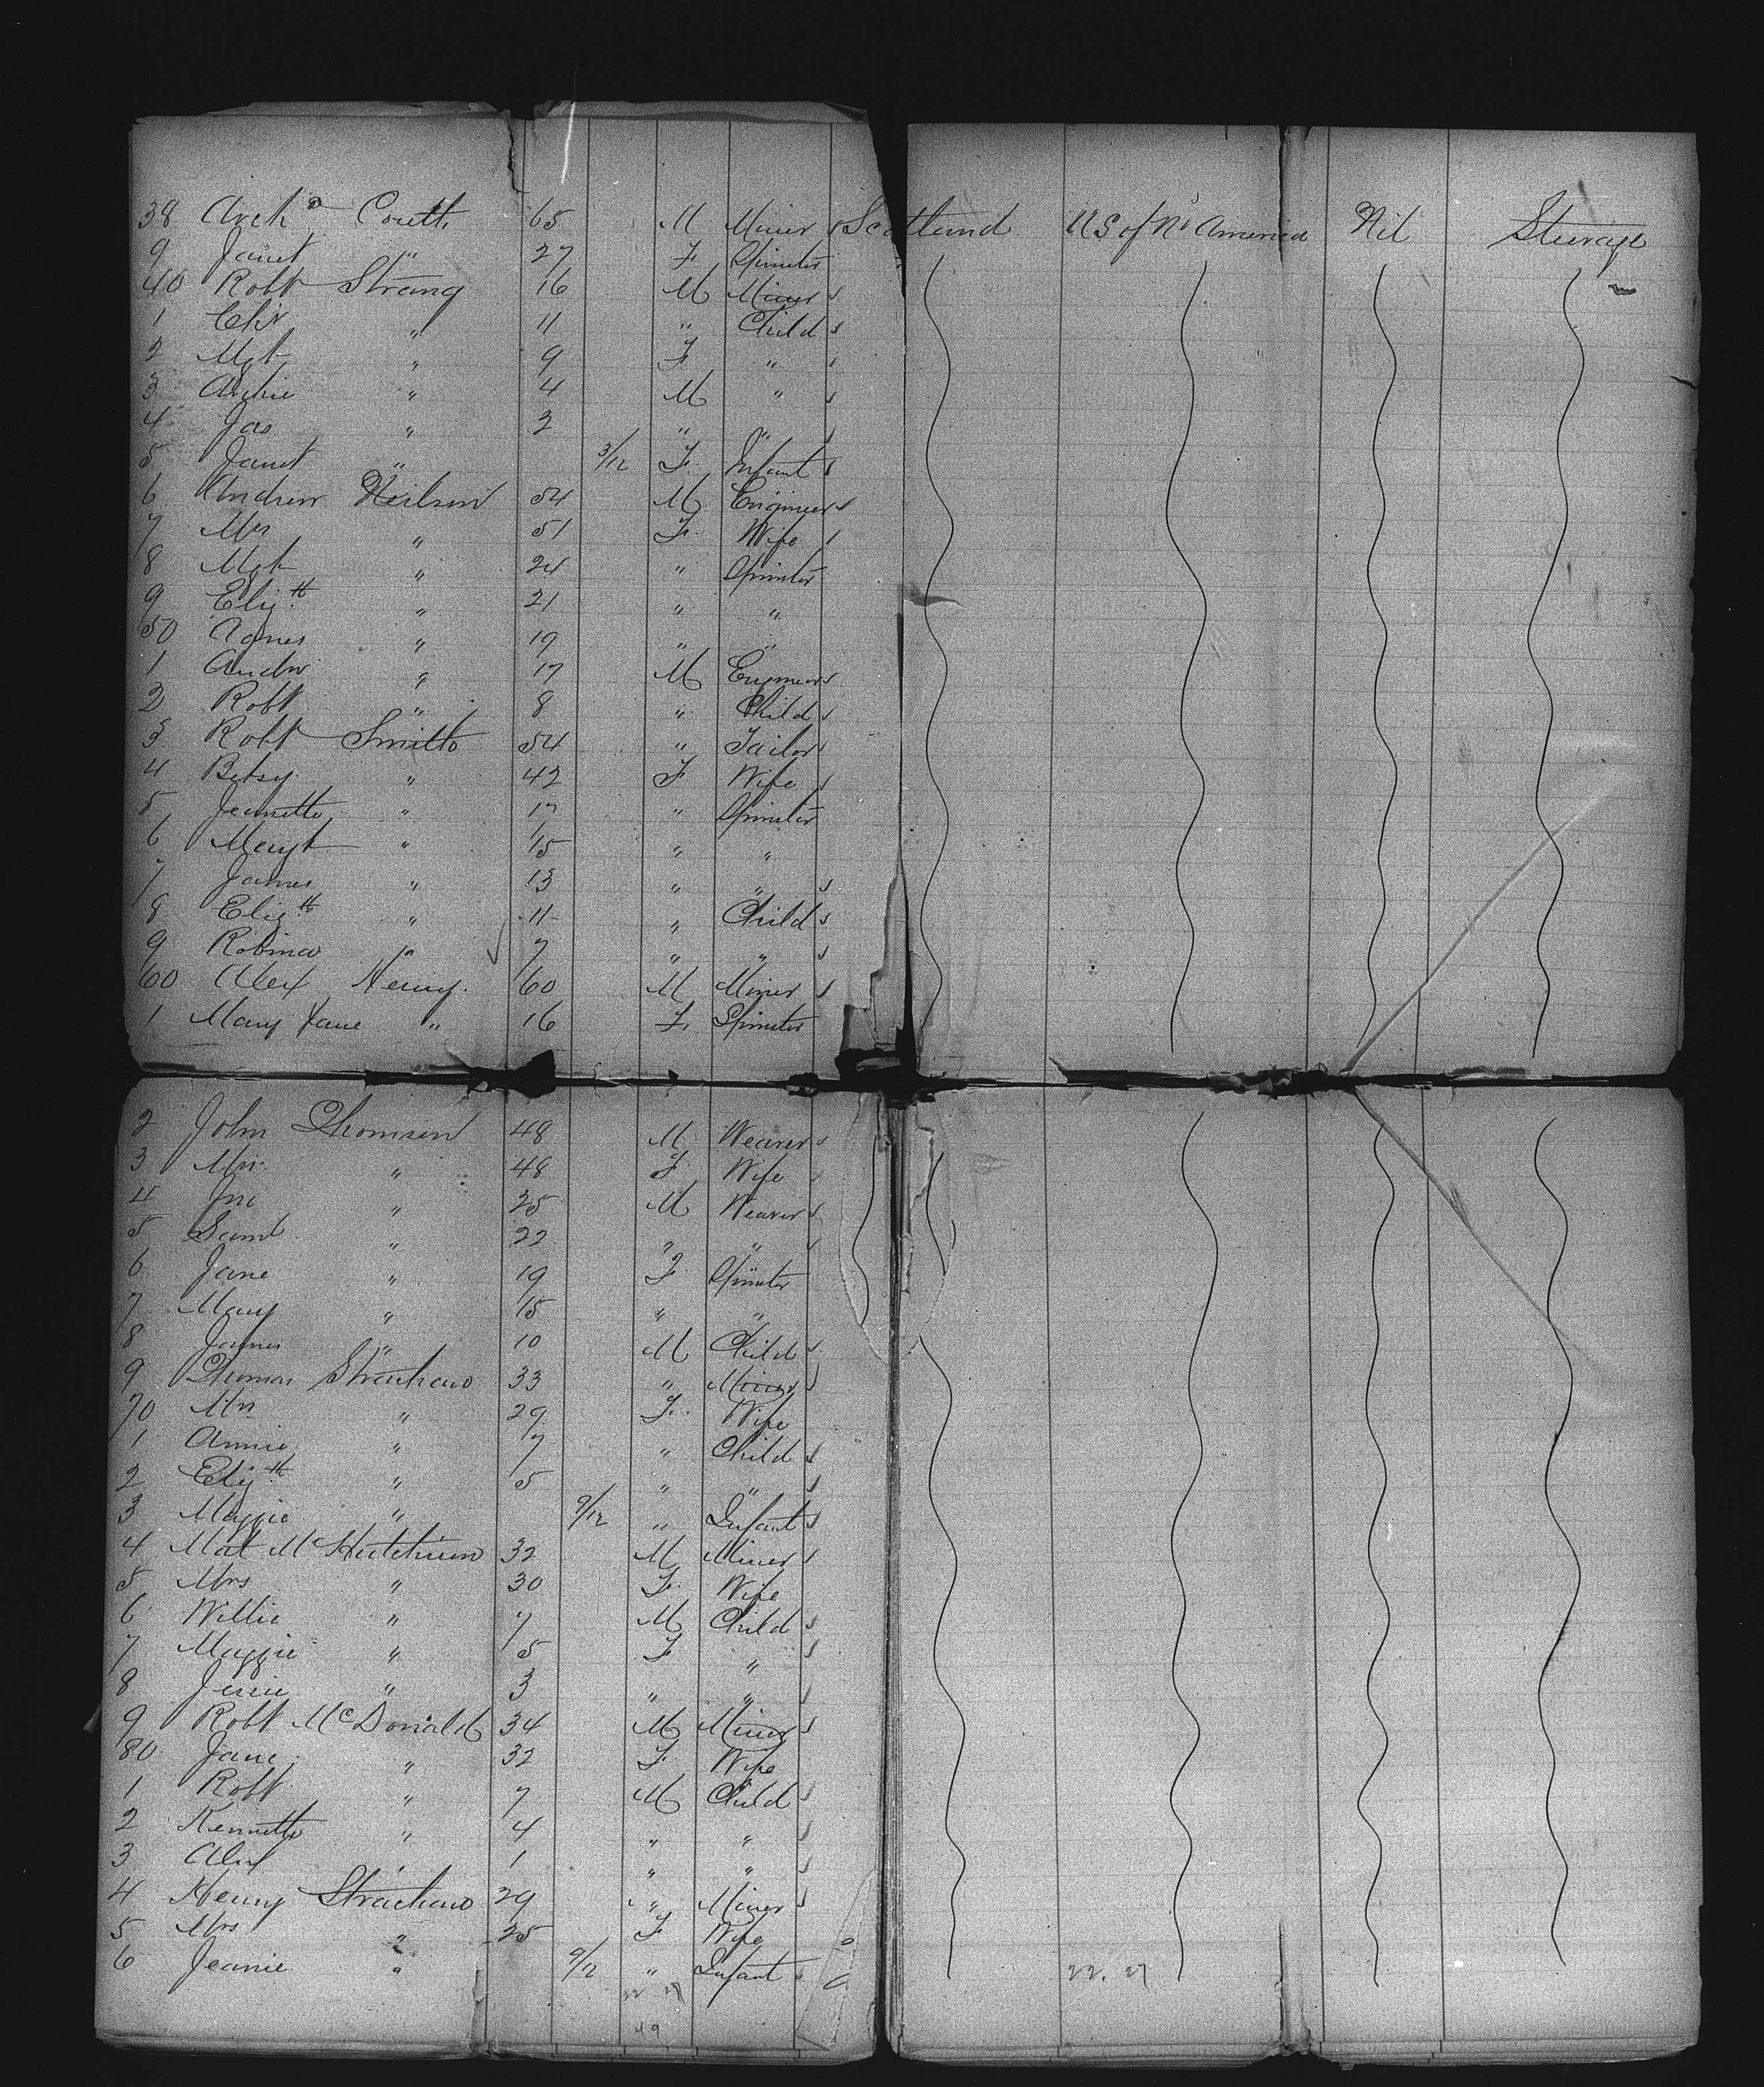 38 Archd Coutts 65 M Miner Scotland U S of No America Nil Steerage
9 Janet " 27 F Spinster
40 Robt Strang 16 M Miner
1 Chr " 11 " Child
2 Mgt " 9 F "
3 Archie " 4 M "
4 Jas " 2 " "
5 Janet " 3/12 F Infant
6 Andrew Neilson 54 M Engineer
7 Mrs " 51 F Wife
8 Mgt " 24 " Spinster
9 Elizth " 21 " "
50 Agnes " 19 " "
1 Andw " 17 M Engineer
2 Robt " 8 " Child
3 Robt Smith 54 " Tailor
4 Betsy " 42 F Wife
5 Jeanette " 17 " Spinster
6 Margt " 15 " "
7 James " 13 " "
8 Elizth " 11 " Child
9 Robina " 7 " "
60 Alex Henry 60 M Miner
1 Mary Jane " 16 F Spinster
2 John Thomson 48 M Weaver
3 Mrs " 48 F Wife
4 Jno " 25 M Weaver
5 Saml " 22 " "
6 Jane " 19 F Spinster
7 Mary " 15 " "
8 James " 10 M Child
9 Thomas Strachan 33 " Miner
70 Mrs " 29 F Wife
1 Annie " 7 " Child
2 Elizth " 5 " "
3 Maggie " 9/12 " Infant
4 Mat McHutchison 32 M Miner
5 Mrs " 30 F Wife
6 Willie " 7 M Child
7 Maggie " 5 F "
8 Jessie " 3 " "
9 Robt McDonald 34 M Miner
80 Jane " 32 F Wife
1 Robt " 7 M Child
2 Kenneth " 4 " "
3 Alex " 1 " "
4 Henry Strachan 29 " Miner
5 Mrs " 25 F Wife
6 Jeanie " 9/12 " Infant
22 27 22. 27
49